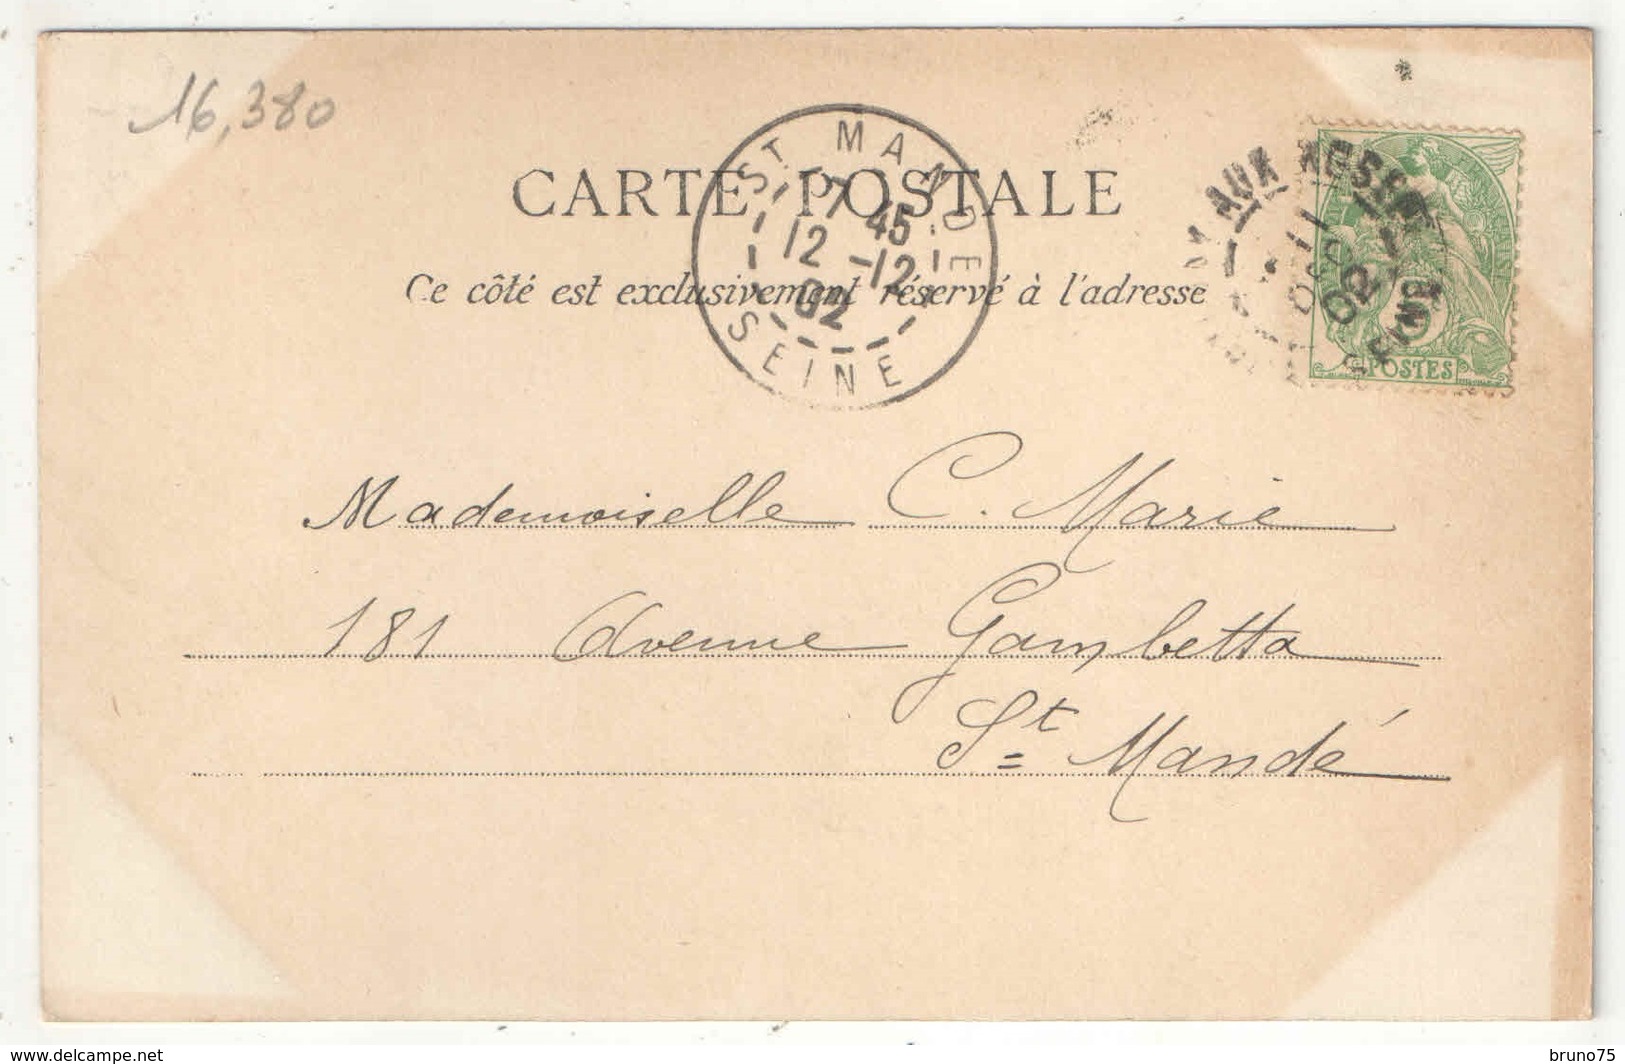 16,380
CARTE POSTALE
Ce côté est exclusivement réservé à l'adresse
ST MANDE
7 45
12 -12
02
SEINE
AUX ROSES
02
SEINE
POSTES
Mademoiselle C. Marie
181 Avenue Gambetta
St Mandé
www.delcampe.net
bruno75